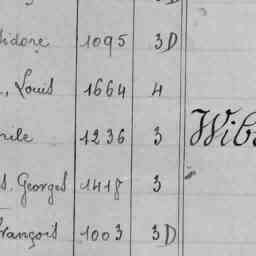 idore 1095 3D
, Louis 1664 4
mile 1236 3 Wib
s, Georges 1418 3
rançois 1003 3D